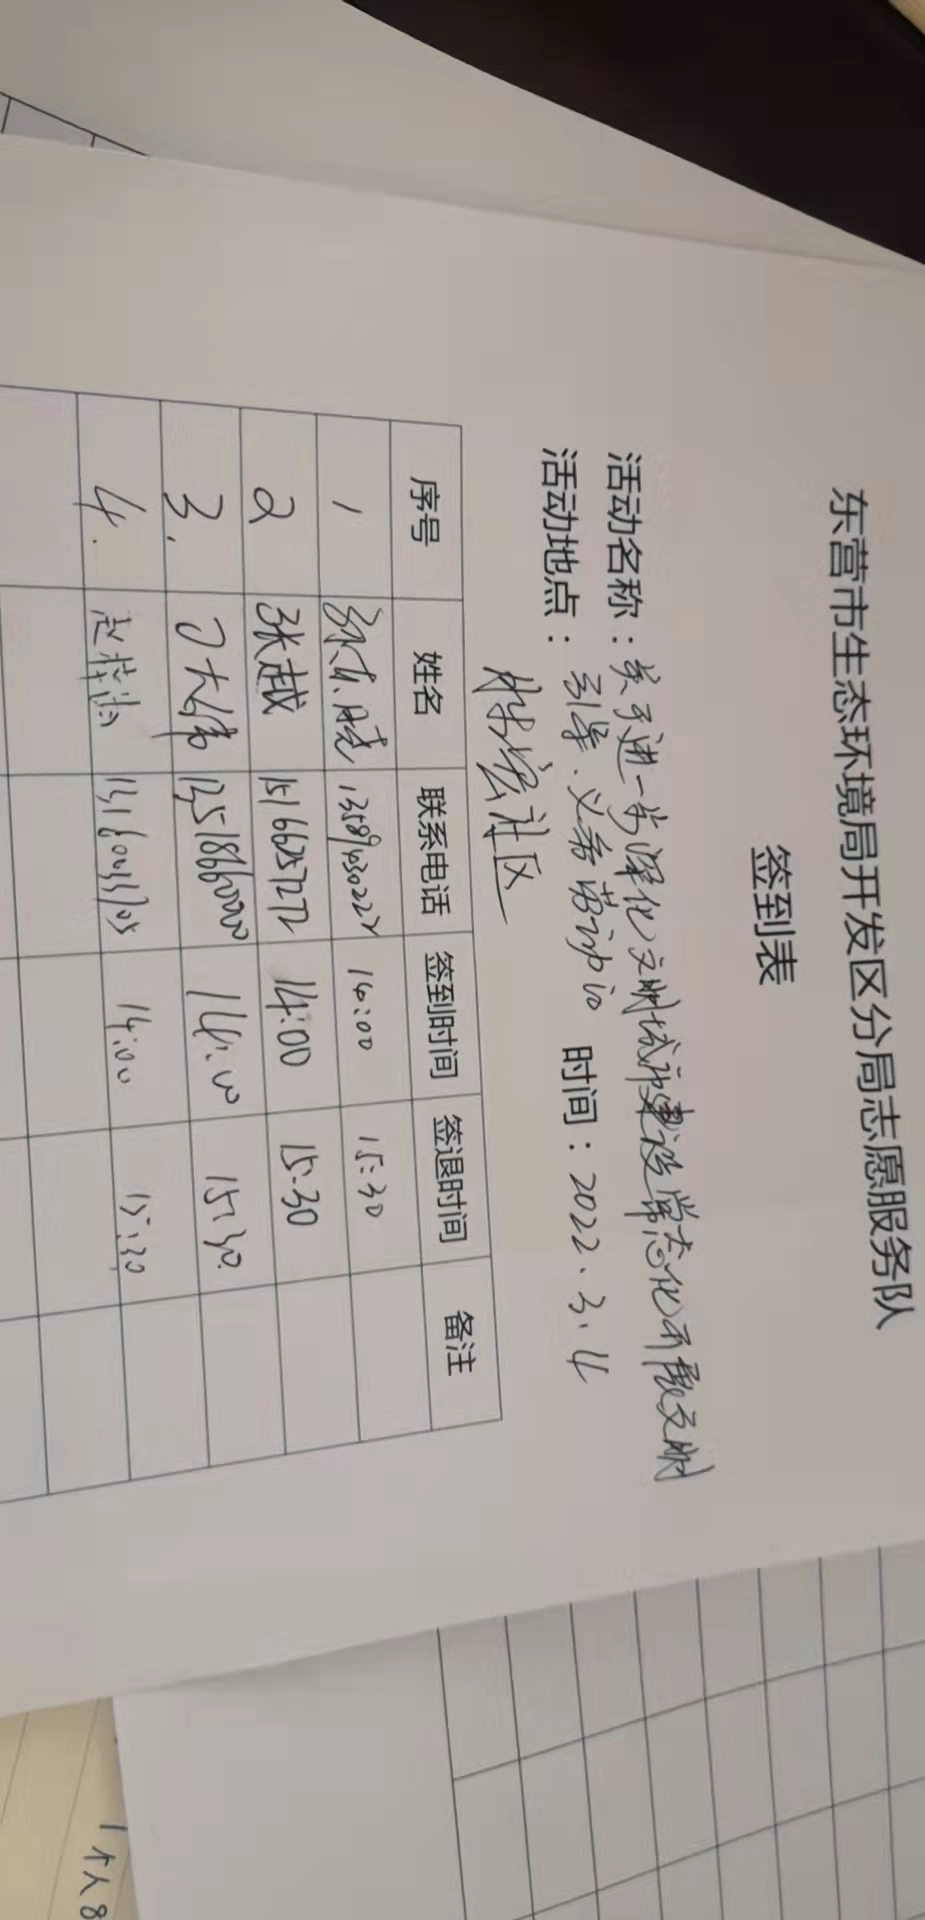 东营市生态环境局开发区分局志愿服务队
签到表
活动名称：关于进一步深化文明城市建设常态化开展文明
活动地点： 引导、义务劳动 时间：2022.3.4
社区
序号 姓名 联系电话 签到时间 签退时间 备注
1 14:00 15:30
2 张越 15166257272 14:00 15:30
3. 丁大伟 13518660000 14:00 15:30
4. 14:00 15:30
1个人